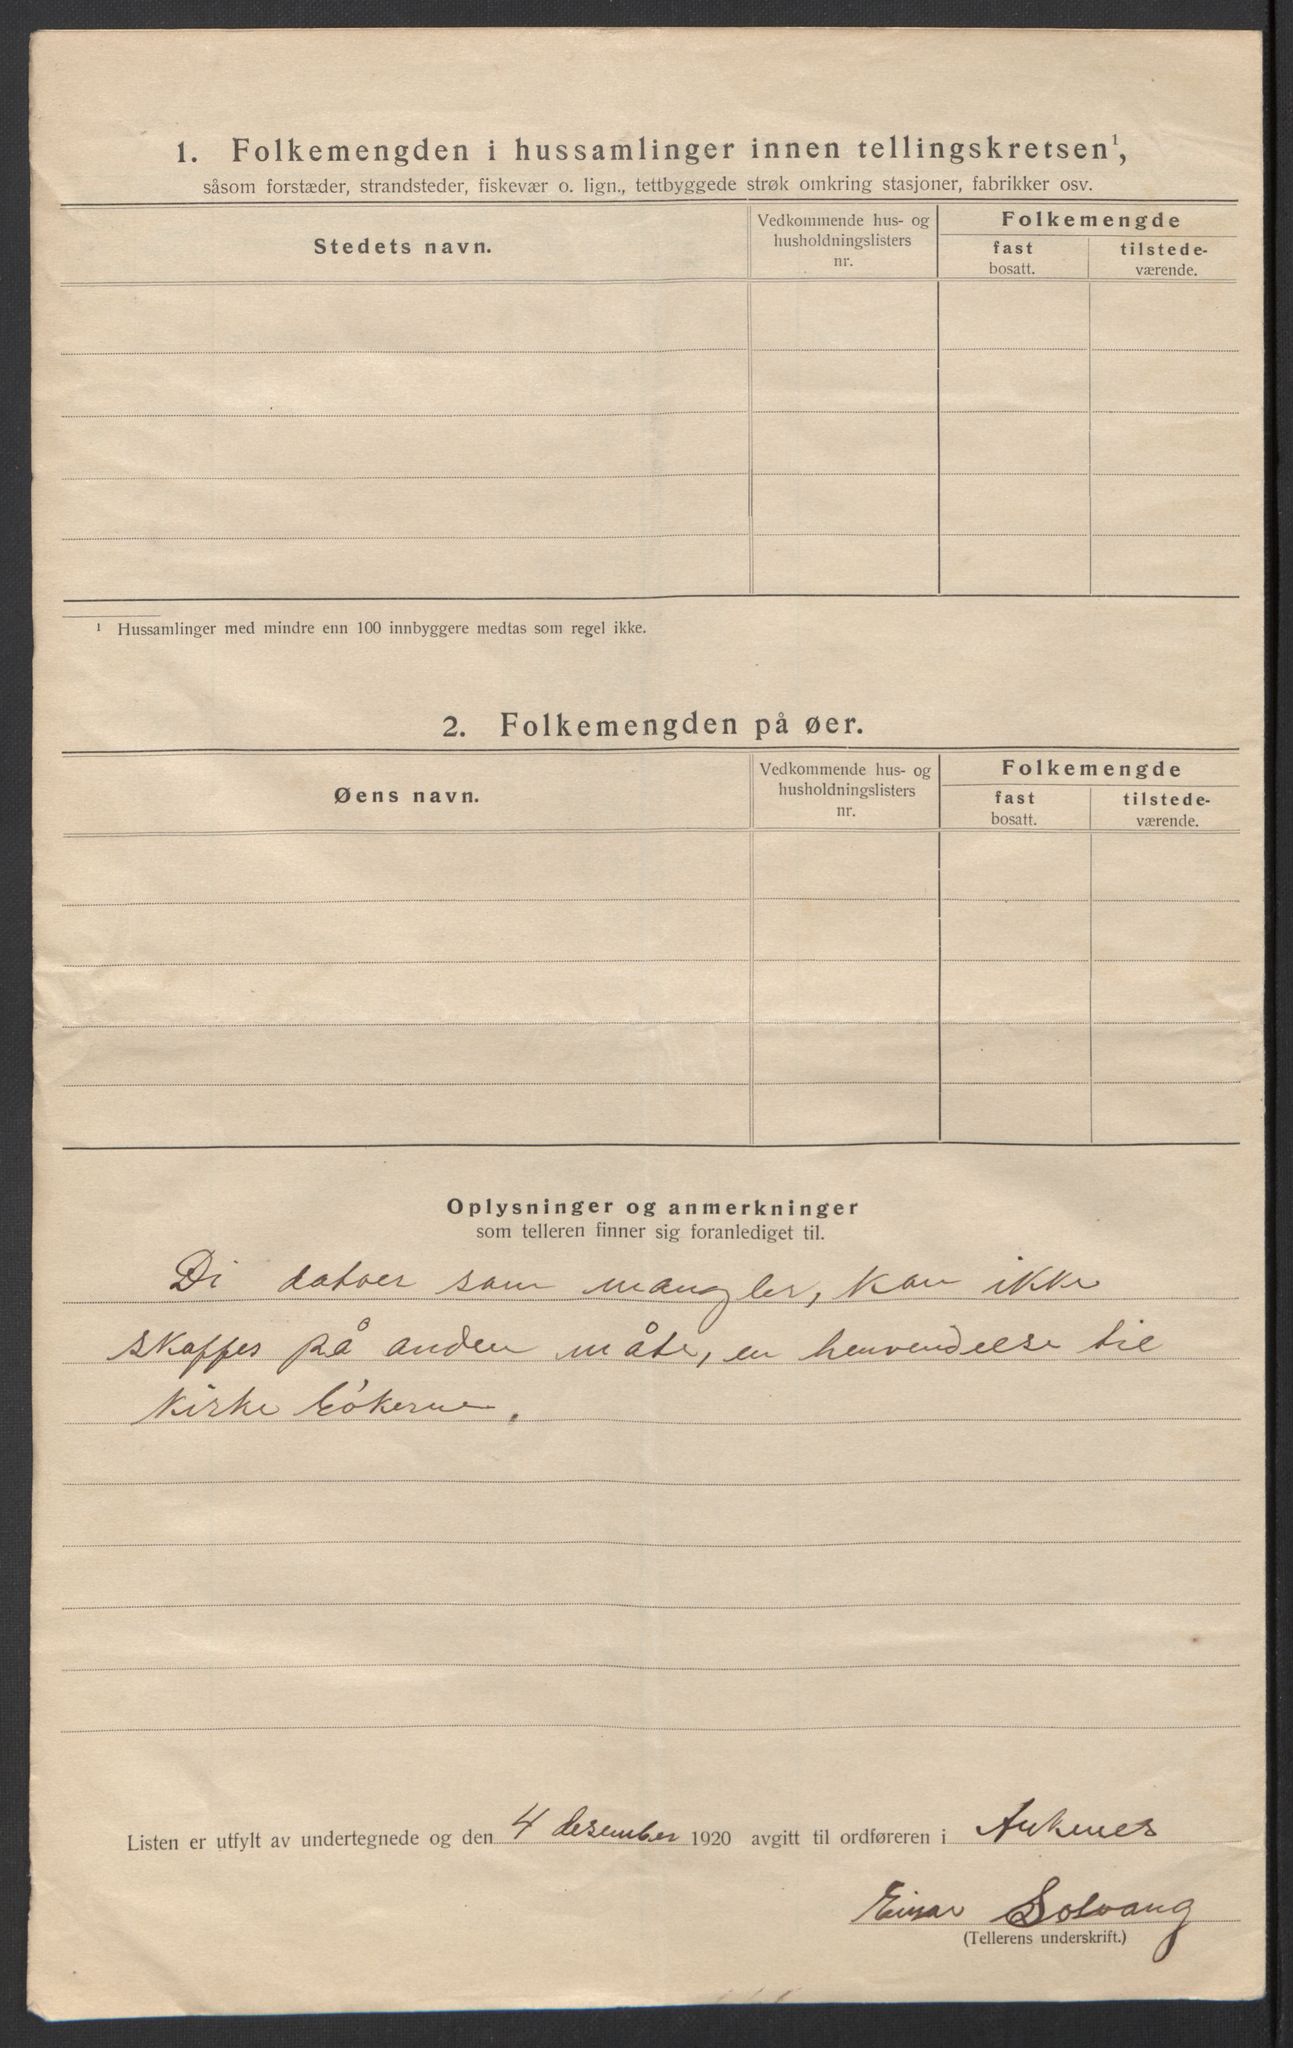 1. Folkemengden i hussamlinger innen tellingskretsen¹,
såsom forstæder, strandsteder, fiskevær o. lign., tettbyggede strøk omkring stasjoner, fabrikker osv.
Stedets navn.
Vedkommende hus- og
husholdningslisters
nr.
Folkemengde
fast
bosatt.
tilstede-
værende.
¹ Hussamlinger med mindre enn 100 innbyggere medtas som regel ikke.
2. Folkemengden på øer.
Øens navn.
Vedkommende hus- og
husholdningslisters
nr.
Folkemengde
fast
bosatt.
tilstede-
værende.
Oplysninger og anmerkninger
som telleren finner sig foranlediget til.
Di datoer som mangler, kan ikke
skaffes på anden måte, en henvendelse til
kirke bøkerne.
Listen er utfylt av undertegnede og den 4 desember 1920 avgitt til ordføreren i Ankenes
Einar Solvang
(Tellerens underskrift.)